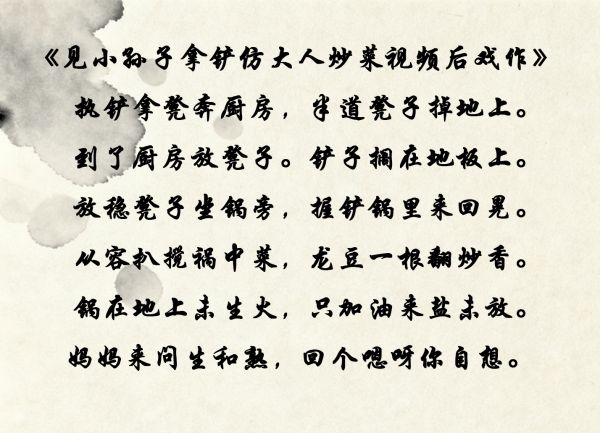 《见小孙子拿铲仿大人炒菜视频后戏作》
执铲拿凳奔厨房，半道凳子掉地上。
到了厨房放凳子。铲子搁在地板上。
放稳凳子坐锅旁，握铲锅里来回晃。
从容扒搅祸中菜，龙豆一根翻炒香。
锅在地上未生火，只加油来盐未放。
妈妈来问生和熟，回个嗯呀你自想。